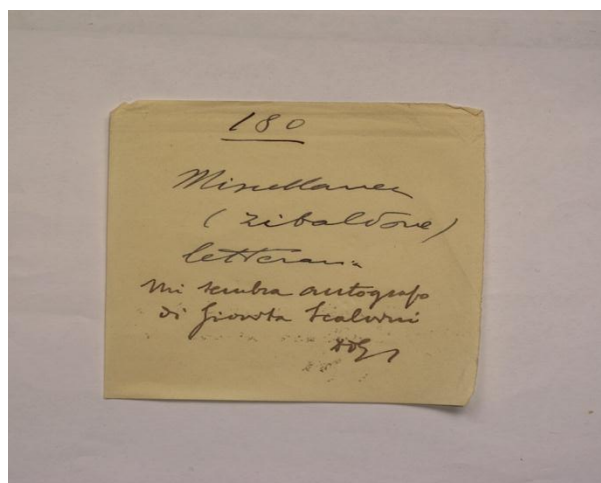 180
Miscellanea
(zibaldone)
letteraria
Mi sembra autografo
di Giovita Scalvini